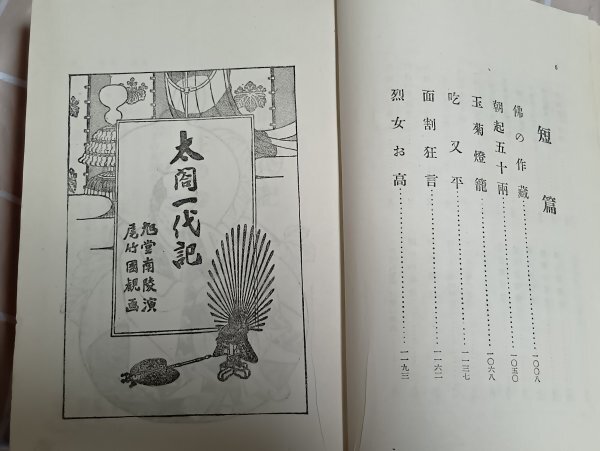 6
短篇
佛の作藏……一〇〇八
朝起五十兩……一〇五〇
玉菊燈籠……一〇六八
吃又平……一一三七
面割狂言……一一六二
烈女お高……一一九三
太閤一代記
旭堂南陵演
尾竹國觀画